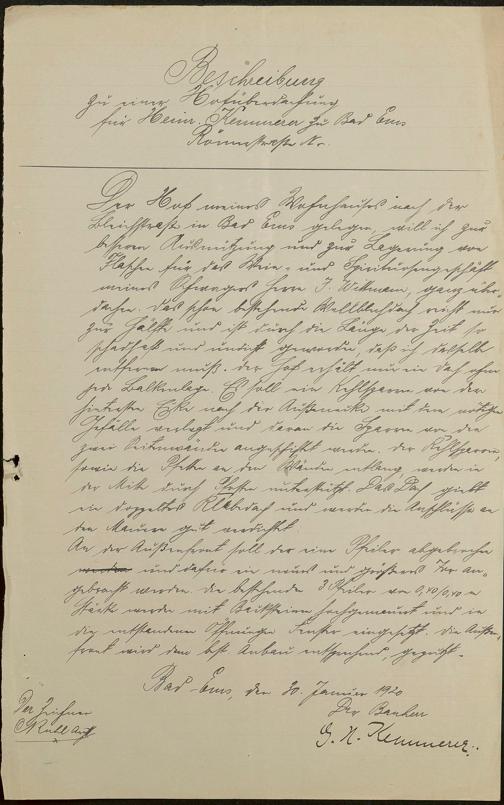 Beschreibung
zu einer Hofüberdachung
für Heinr. Kemmerer zu Bad Ems
Römerstraße No.
Der Hof meines Wohnhauses nach der
Bleichstraße in Bad Ems gelegen, will ich zur
besseren Ausnützung und zur Lagerung von
Flaschen für das Wein- und Spirituosengeschäft
meines Schwagers Herrn J. Wittmann, ganz über-
dachen. Das schon bestehende Wellblechdach reicht nur
zur Hälfte und ist durch die Länge der Zeit so
schadhaft und undicht geworden, daß ich dasselbe
entfernen muß. Der Hof erhält nun ein Dach ohne
jede Balkenlage. Es soll ein Kehlsparren von der
hintersten Ecke nach der Außenecke mit dem nötigen
Gefälle verlegt und daran die Sparren von den
zwei Seitenwänden angeschiftet werden. Der Kehlsparren,
sowie die Pfetten an den Wänden entlang werden in
der Mitte durch Pfosten unterstützt. Das Dach giebt
ein doppeltes Klebedach und werden die Anschlüsse an
den Mauern gut verdichtet.
An der Außenfront soll der eine Pfeiler abgebrochen
werden und dafür ein neues und größeres Tor an-
gebracht werden. Die bestehenden 3 Pfeiler von 0,40/0,40 m
Stärke werden mit Backsteinen hochgemauert und in
die entstandenen Öffnungen Fenster eingesetzt. Die Außen-
front wird dem Anbau entsprechend, geputzt.
Bad Ems, den 20. Januar 1920
Der Zeichner
Der Bauherr
J. H. Kemmerer.